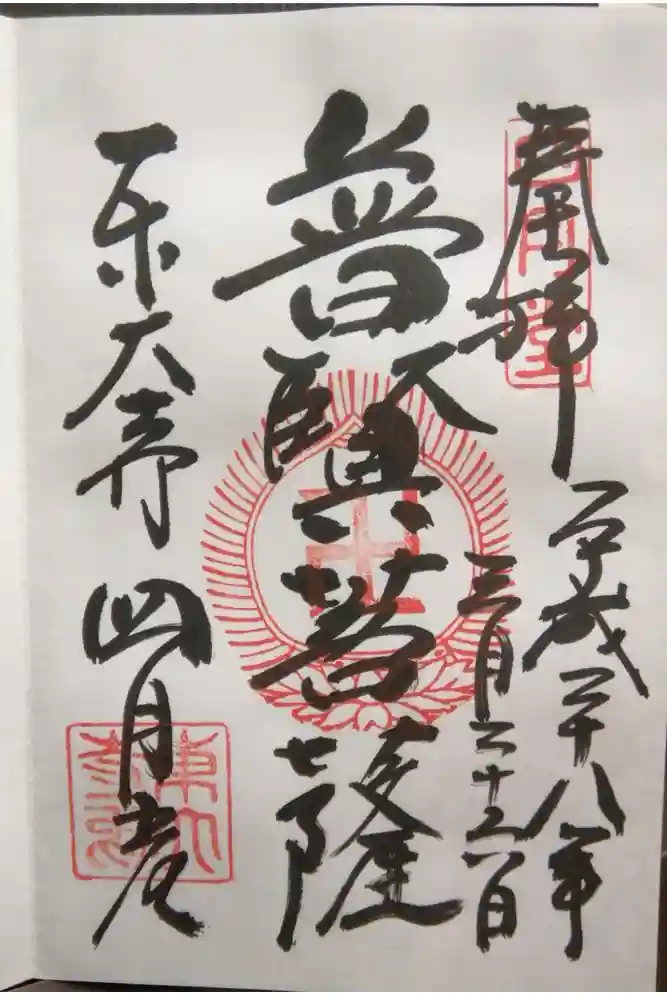 奉拝
四月堂
平成二十八年
三月二十六日
普賢菩薩
東大寺 四月堂